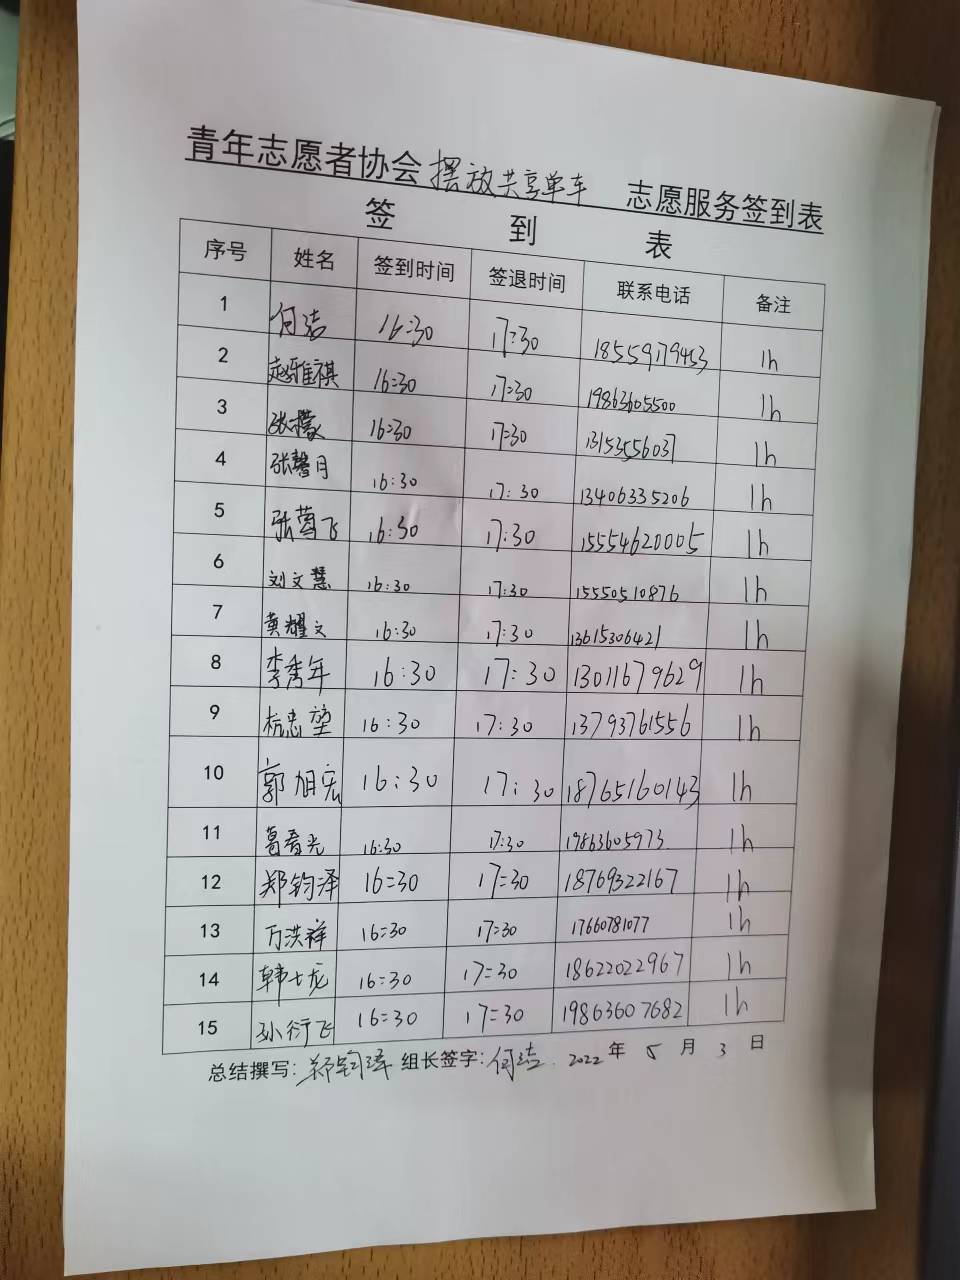 青年志愿者协会 摆放共享单车 志愿服务签到表
签 到 表
序号 姓名 签到时间 签退时间 联系电话 备注
1 何洁 16:30 17:30 18559179453 1h
2 赵雅祺 16:30 17:30 19863605500 1h
3 张檬 16:30 17:30 13153556037 1h
4 张馨月 16:30 17:30 13406335206 1h
5 张莺飞 16:30 17:30 15554620005 1h
6 刘文慧 16:30 17:30 15550510876 1h
7 黄耀文 16:30 17:30 13615306421 1h
8 李秀年 16:30 17:30 13011679629 1h
9 杭忠堃 16:30 17:30 13793761556 1h
10 郭旭宏 16:30 17:30 18765160143 1h
11 葛春光 16:30 17:30 19863605973 1h
12 郑钧泽 16:30 17:30 18769322167 1h
13 万洪祥 16:30 17:30 17660781077 1h
14 韩士龙 16:30 17:30 18622022967 1h
15 孙衍飞 16:30 17:30 19863607682 1h
总结撰写：郑钧泽 组长签字：何洁 2022年 5 月 3 日